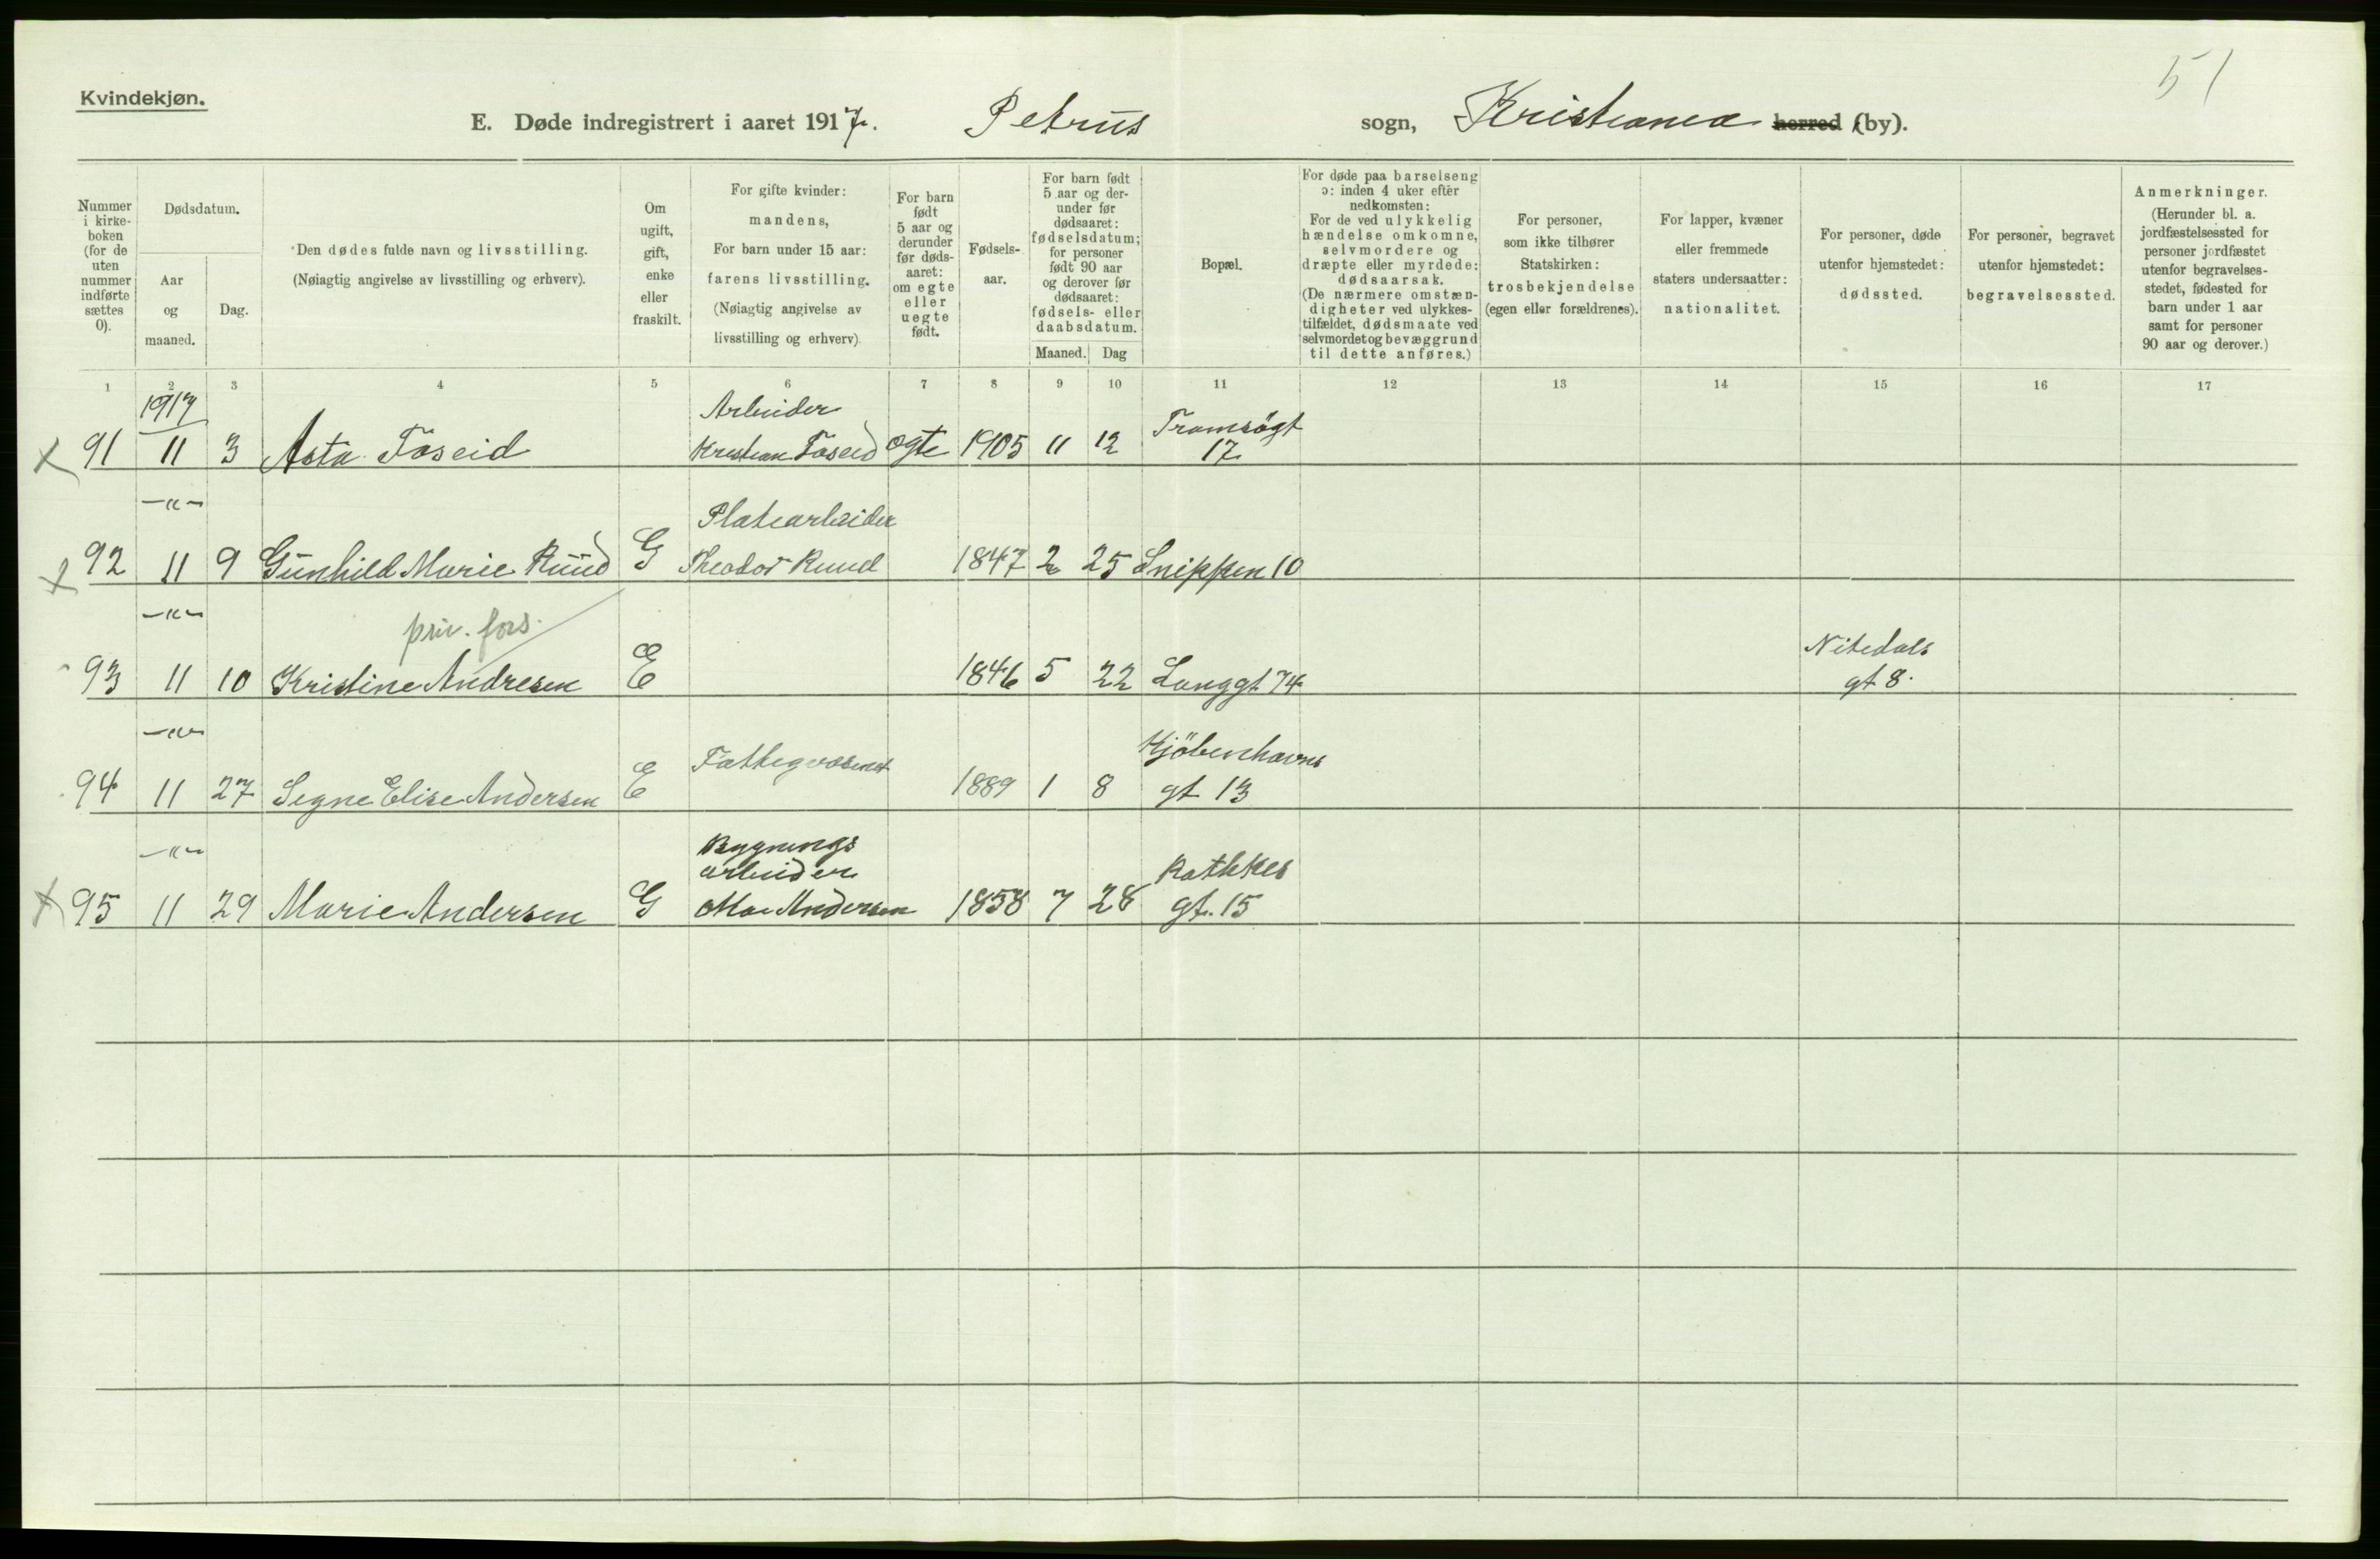 51
Kvindekjøn.
E. Døde indregistrert i aaret 1917. Petrus sogn, Kristiania herred (by).
Nummer i kirkeboken (for de uten nummer indførte sættes 0).
Dødsdatum.
Aar og maaned.
Dag.
Den dødes fulde navn og livsstilling.
(Nøiagtig angivelse av livsstilling og erhverv).
Om ugift, gift, enke eller fraskilt.
For gifte kvinder: mandens,
For barn under 15 aar: farens livsstilling.
(Nøiagtig angivelse av livsstilling og erhverv).
For barn født 5 aar og derunder før dødsaaret: om egte eller uegte født.
Fødselsaar.
For barn født 5 aar og derunder før dødsaaret: fødselsdatum; for personer født 90 aar og derover før dødsaaret: fødsels- eller daabsdatum.
Maaned. Dag
Bopæl.
For døde paa barselseng ɔ: inden 4 uker efter nedkomsten:
For de ved ulykkelig hændelse omkomne, selvmordere og dræpte eller myrdede: dødsaarsak.
(De nærmere omstændigheter ved ulykkestilfældet, dødsmaate ved selvmordet og bevæggrund til dette anføres.)
For personer, som ikke tilhører Statskirken: trosbekjendelse (egen eller forældrenes).
For lapper, kvæner eller fremmede staters undersaatter: nationalitet.
For personer, døde utenfor hjemstedet: dødssted.
For personer, begravet utenfor hjemstedet: begravelsessted.
Anmerkninger.
(Herunder bl. a. jordfæstelsessted for personer jordfæstet utenfor begravelsesstedet, fødested for barn under 1 aar samt for personer 90 aar og derover.)
1 2 3 4 5 6 7 8 9 10 11 12 13 14 15 16 17
1917 Arbeider Tromsögt
91 11 3 Asta Föseid Kristian Föseid ogte 1905 11 12 17
—"— Platearbeider
92 11 9 Gunhild Marie Ruud G Theodor Ruud 1847 2 25 Snippen 10
—"— priv. fors. Nitedals
93 11 10 Kristine Andresen E 1846 5 22 Langgt 74 gt 8.
—"— Fattigvæsenet Kjöbenhavns
94 11 27 Segne Elise Andersen E 1889 1 8 gt 13
—"— Bygnings
arbeider Rathkes
95 11 29 Marie Andersen G Andersen 1858 7 28 gt. 15